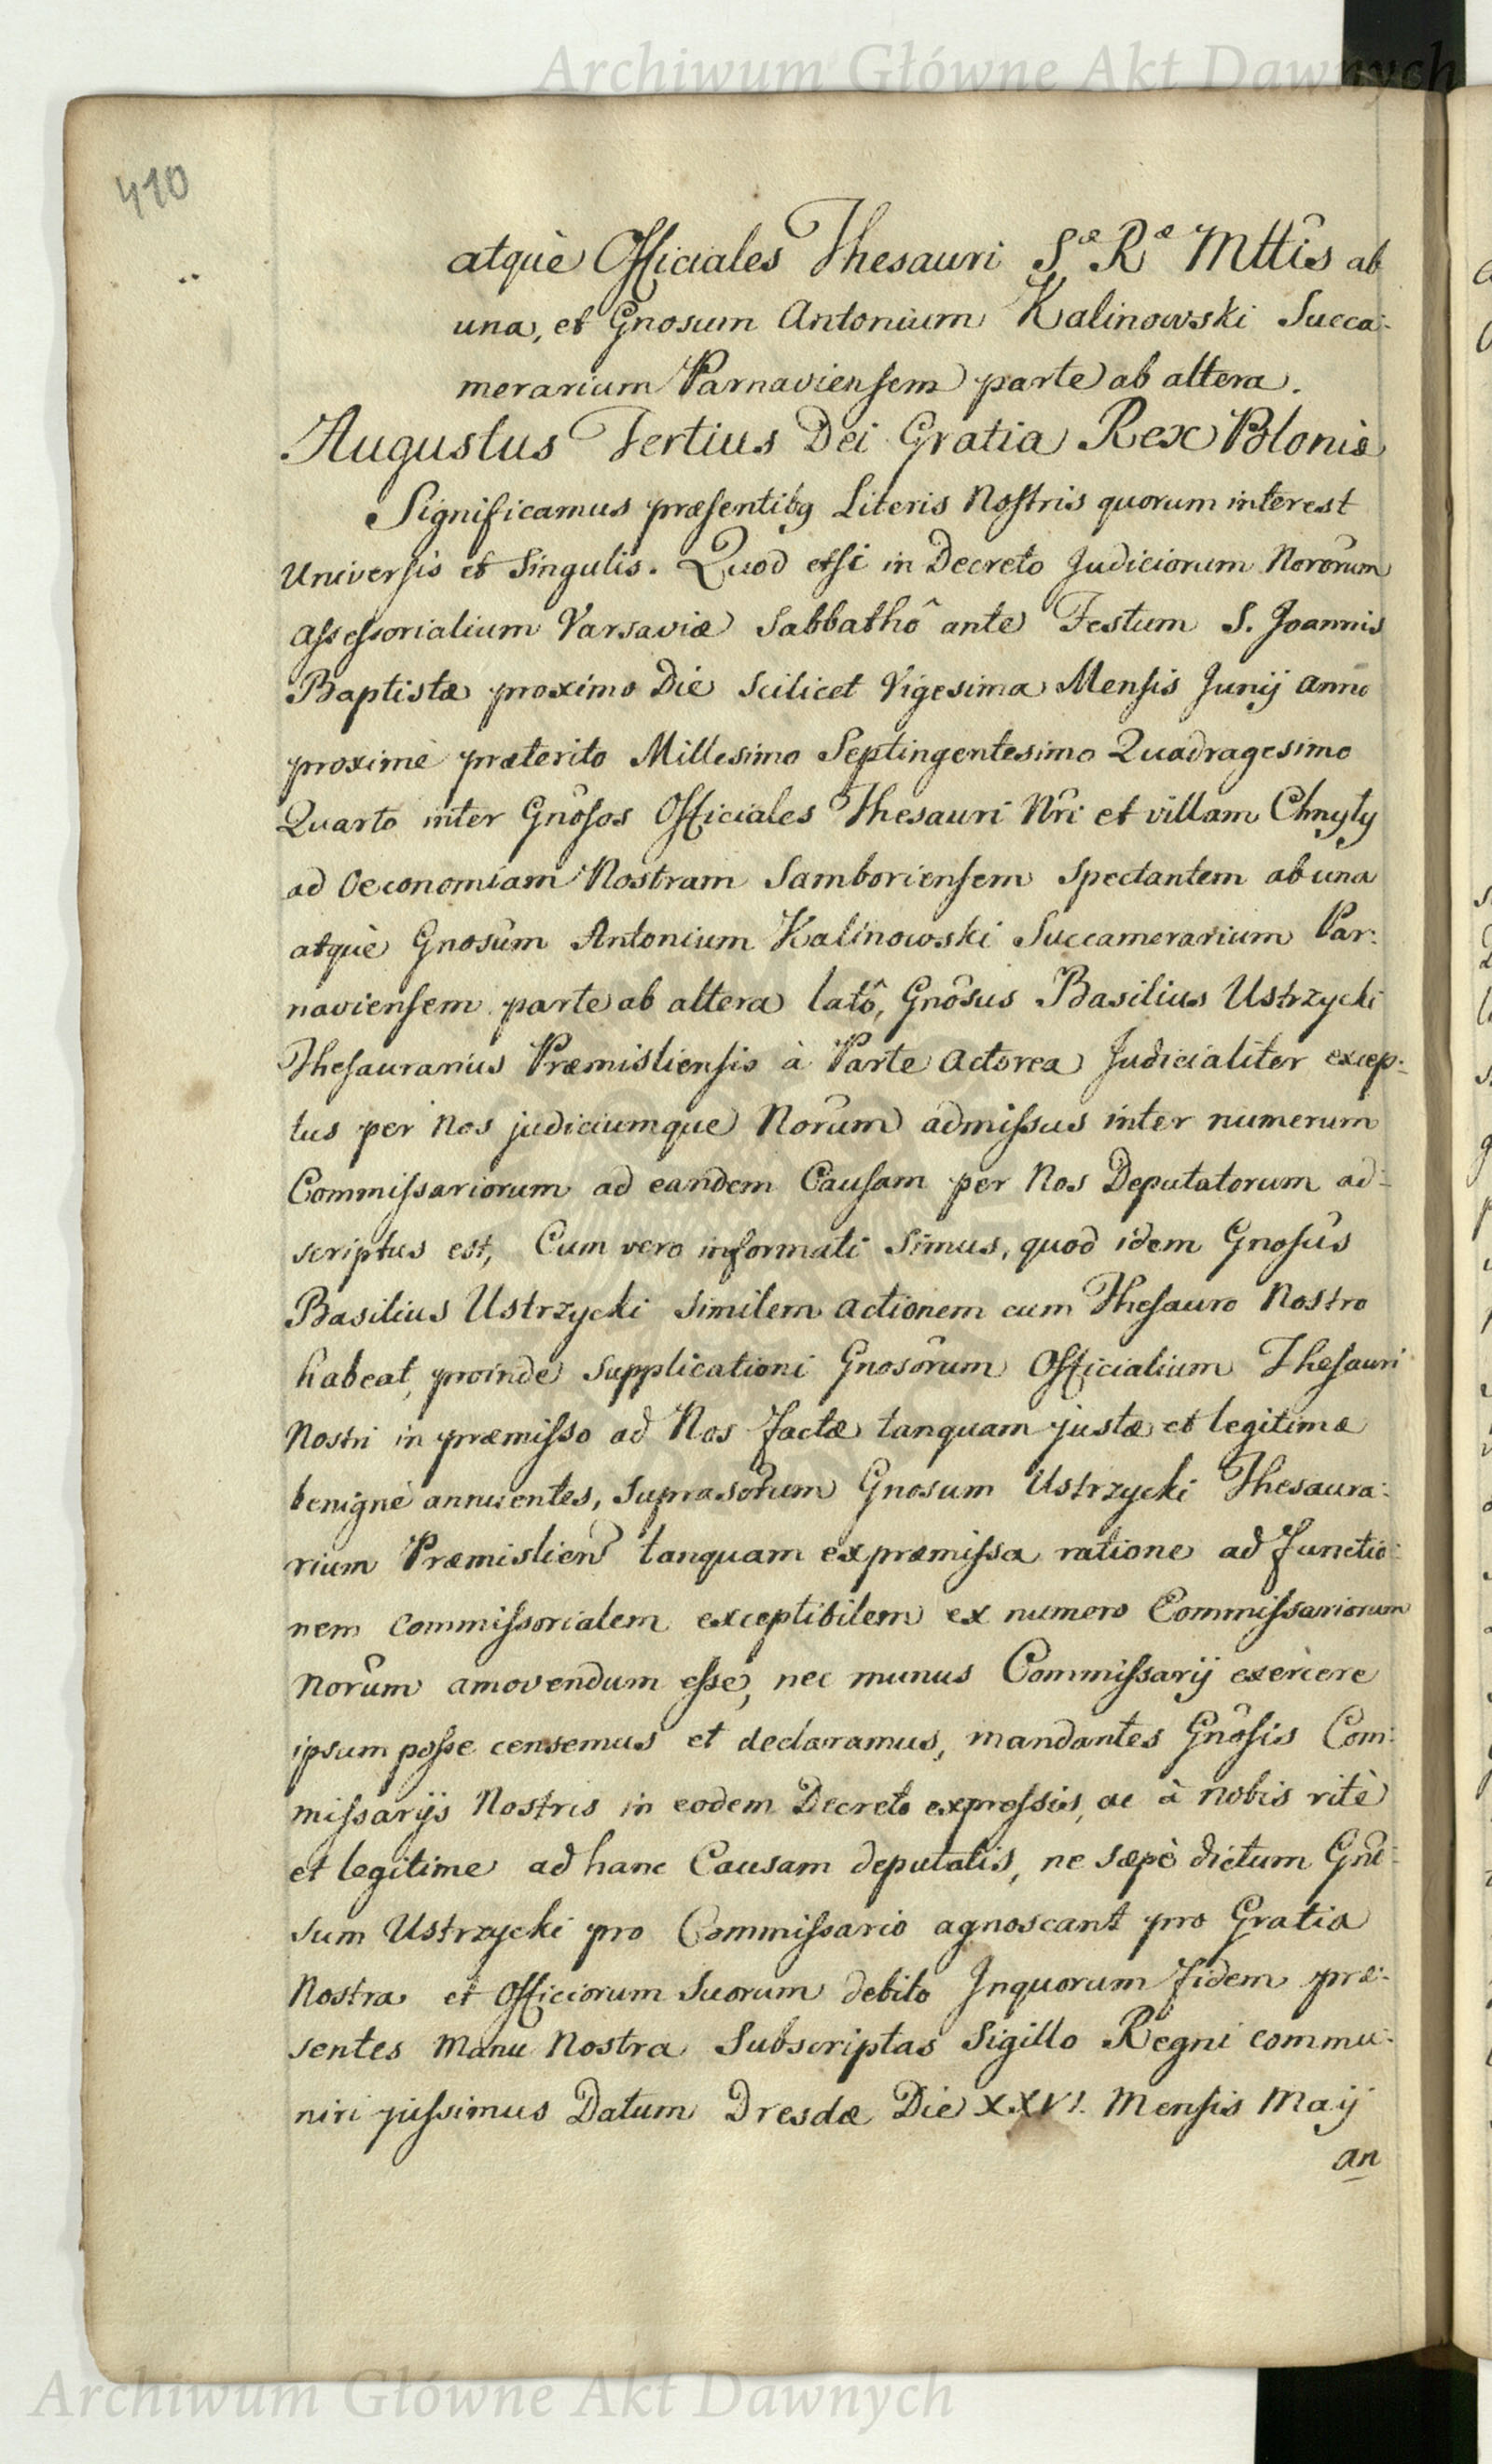 Archiwum Główne Akt Dawnych
410
atquè Officiales Thesauri Sæ Ræ Mttîs ab
una, et Gnosum Antonium Kalinowski Succa:
merarium Parnaviensem parte ab altera.
Augustus Tertius Dei Gratia Rex Poloniæ
Significamus præsentibg Literis Nostris quorum interest
Universis et Singulis. Quod etsi in Decreto Judiciorum Norôrum
Assessorialium Varsaviæ Sabbathô ante Festum S. Joannis
Baptistæ proximo Die Scilicet Vigesima Mensis Junij Anno
proximè præterito Millesimo Septingentesimo Quadragesimo
Quarto inter Gnôsos Officiales Thesauri Nri et villam Chnyly
ad Oeconomiam Nostram Samboriensem Spectantem ab una
atquè Gnosûm Antonium Kalinowski Succamerarium Par:
naviensem parte ab altera latô, Gnôsus Basilius Ustrzycki
Thesaurarius Præmisliensis à Parte Actorea Judicialiter excep:
tus per Nos judiciumque Norûm admissus inter numerum
Commissariorum ad eandem Causam per Nos Deputatorum ad:
scriptus est, Cum vero informati Simus, quod idem Gnosûs
Basilius Ustrzycki Similem Actionem cum Thesauro Nostro
habeat, proindè Supplicationi Gnosôrum Officialium Thesauri
Nostri in præmisso ad Nos factæ tanquam justæ et legitimæ
benignè annuentes, Suprasôrum Gnosum Ustrzycki Thesaura:
rium Præmislien tanquam ex præmissa ratione ad functio:
nem Commissorialem exceptibilem ex numero Commissariorum
Norûm amovendum esse, nec munus Commissarij exercere
ipsum posse censemus et declaramus, mandantes Gnôsis Com:
missarijs Nostris in eodem Decreto expressis, ac à nobis ritè
et legitime ad hanc Causam deputatis, ne sæpè dictum Gnô:
sum Ustrzycki pro Commissario agnoscant pro Gratia
Nostra et Officiorum Suorum debito Inquorum fidem præ:
sentes Manu Nostra Subscriptas Sigillo Regni commu:
niri jussimus Datum Dresdæ Die XXVI. Mensis Maij
an
Archiwum Główne Akt Dawnych